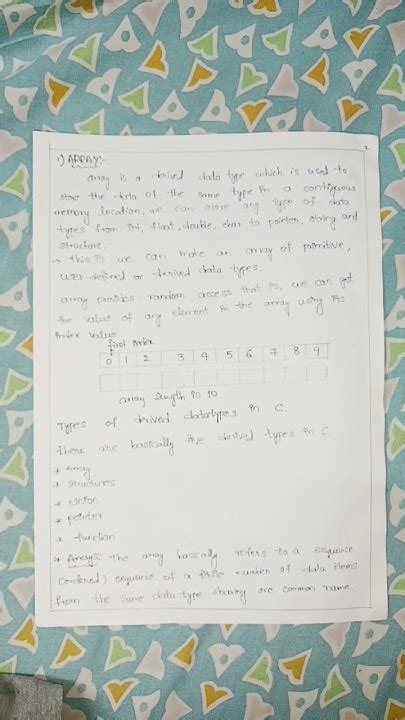 1) ARRAY:-
array is a derived data type which is used to
store the data of the same type in a contiguous
memory location, we can store any type of data
types from int, float, double, char to pointer, string and
structure.
→ this is we can make an array of primitive,
user-defined or derived data types.
array provides random access that is, we can get
the value of any element in the array using its
index value
first index
0 1 2 3 4 5 6 7 8 9
array length is 10
Types of derived datatypes in C.
there are basically five derived types in C.
* array
* structures
* union
* pointer
* function
* Arrays: The array basically refers to a sequence
(ordered) sequence of a finite number of data items
from the same data type sharing one common name.